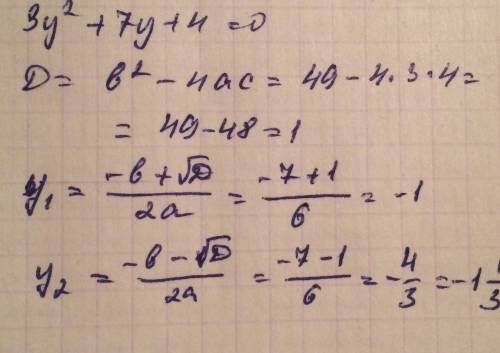 3y² + 7y + 4 = 0
D = b² - 4ac = 49 - 4·3·4 =
= 49 - 48 = 1
y₁ = (-b + √D)/2a = (-7 + 1)/6 = -1
y₂ = (-b - √D)/2a = (-7 - 1)/6 = -4/3 = -1 1/3